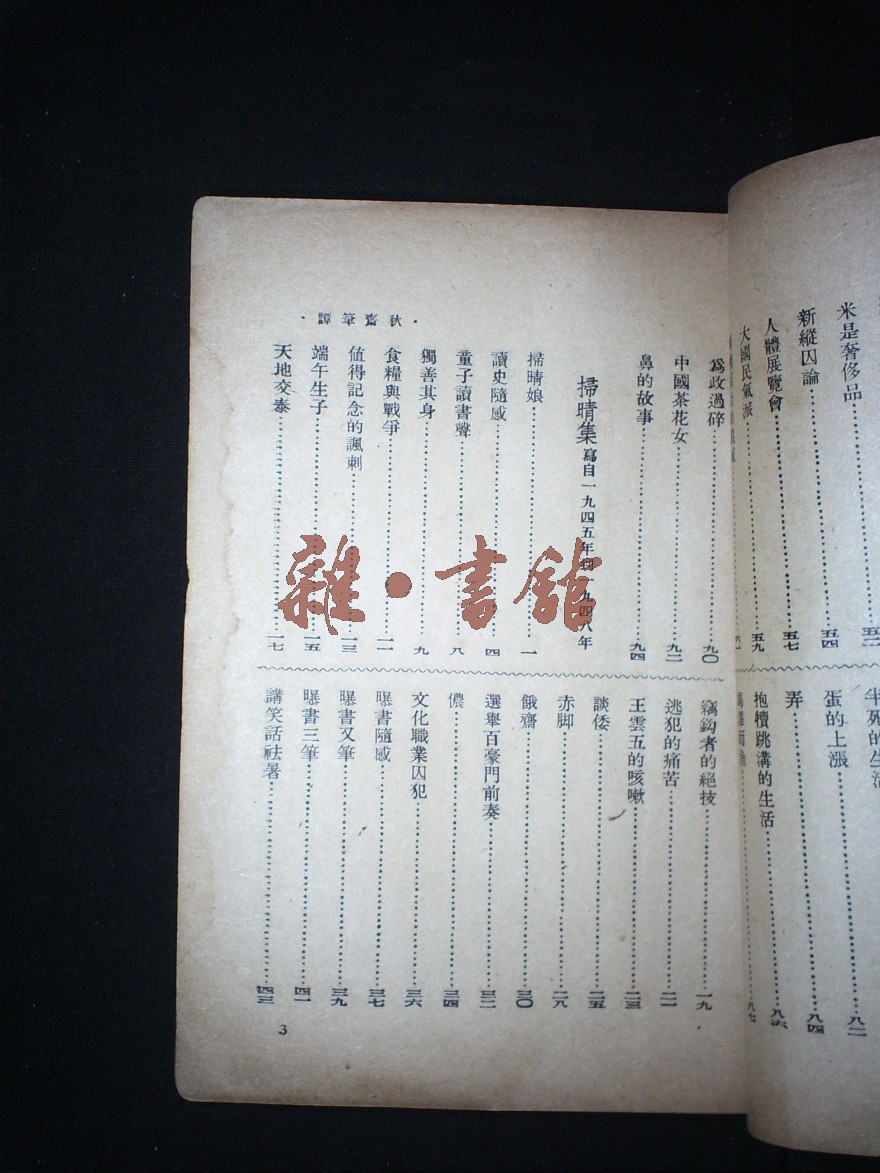 米是奢侈品……五二
新縱囚論……五四
人體展覽會……五七
大國民氣派……五九
蛋的上漲……八四
弄……八六
抱犢跳溝的生活……八七
·秋齋筆譚·
爲政過碎……九〇
中國茶花女……九二
鼻的故事……九四
掃晴集 寫自一九四五年到一九四八年
掃晴娘……一
讀史隨感……四
童子讀書聲……八
獨善其身……九
食糧與戰爭……一一
値得記念的諷刺……一三
端午生子……一五
天地交泰……一七
竊鈎者的絕技……一九
逃犯的痛苦……二一
王雲五的咳嗽……二三
談倭……二五
赤脚……二八
餓齋……三〇
選舉百豪門前奏……三二
儂……三四
文化職業囚犯……三六
曝書隨感……三七
曝書又筆……三九
曝書三筆……四一
講笑話祛暑……四三
3
雜·書館